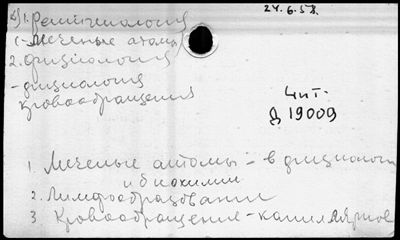 24.6.58.
1. Рентгенология
(-Меченые атомы
2. физиология
- физиология
кровообращения
Чит.
Д 19009
1. Меченые атомы - в физиологи
и биохимии
2. Лимфообразование
3. Кровообращение - капиллярное